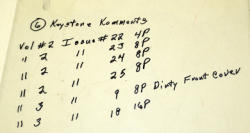 ⑥ Keystone Komments
Vol #2 Issue #22 4P
" 2 " 23 8P
" 2 " 24 6P
" 2 " 25 8P
" 3 " 9 8P Dirty Front Cover
" 3 " 18 16P